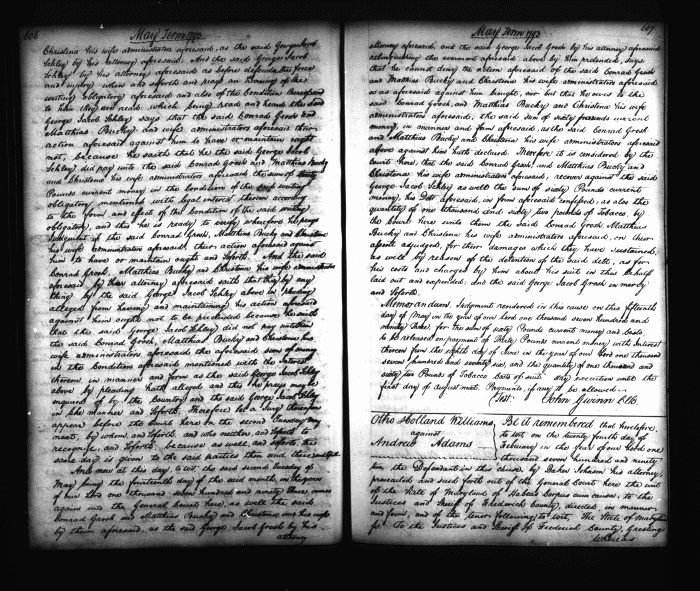 606
May Term 1793
Christina his wife administrators aforesaid, as the said George Jacob
Schley by his attorney aforesaid. And the said George Jacob
Schley by his attorney aforesaid as before defends the force
and injury when &c and saforth and prays an Hearing of the
writing obligatory aforesaid and also of the Condition thereof and
to him they are read, which being read and heard the said
George Jacob Schley says that the said Conrad Grosh and
Matthias Bucky and wife administrators aforesaid their
action aforesaid against him to have or maintain ought
not, because he saith that he the said George Jacob
Schley did pay unto the said Conrad Grosh and Matthias Bucky
and Christina his wife administrators aforesaid the sum of thirty
Pounds current money in the Condition of the said writing
obligatory mentioned with legal interest thereon according
to the form and effect of the Condition of the said writing
obligatory, and this he is ready to verify wherefore he prays
Judgment if the said Conrad Grosh, Matthias Bucky and Christina
his wife administrators aforesaid, their action aforesaid against
him to have or maintain ought and soforth. And the said
Conrad Grosh, Matthias Bucky and Christina his wife administrators
aforesaid by their attorney aforesaid saith that they by any
thing by the said George Jacob Schley above in pleading
alleged from having and maintaining his action aforesaid
against him ought not to be precluded because he saith
that the said George Jacob Schley did not pay unto him
the said Conrad Grosh, Matthias Bucky and Christina his
wife administrators aforesaid the aforesaid sum of money
in the Condition aforesaid mentioned with the Interest
thereon in manner and form as the said George Jacob Schley
above by pleading hath alleged and this he prays may be
enquired of by the Country and the said George Jacob Schley
in like manner and soforth. Therefore let a Jury thereupon
appear before the Court here on the second Tuesday May
next, by whom and soforth, and who neither and soforth to
recognize, and soforth, because as well and soforth, the
same day is given to the said parties then and there and soforth.
And now at this day, to wit, the said second Tuesday of
May being the fourteenth day of the said month, in the year
of our Lord one thousand seven hundred and ninety three comes
again into the General Court here, as well the said
Conrad Grosh and Matthias Bucky and Christina his wife
by them aforesaid, as the said George Jacob Grosh by his
attorney
May Term 1793
607
attorney aforesaid, and the said George Jacob Grosh by his attorney aforesaid
relinquishing the averment aforesaid, above by him pretended, says
that he cannot deny the action aforesaid of the said Conrad Grosh
and Matthias Bucky and Christiana his wife administrators aforesaid
so as aforesaid against him brought, nor but that he owes to the
said Conrad Grosh, and Matthias Bucky, and Christina his wife
administrators aforesaid, the said sum of sixty pounds current
money, in manner and form aforesaid, as the said Conrad Grosh
and Matthias Bucky and Christina his wife administrators aforesaid
above against him hath declared. Therefore it is considered by the
Court here, that the said Conrad Grosh, and Matthias Bucky and
Christina his wife aforesaid, recover against the said
George Jacob Schley as well the sum of sixty Pounds current
money, his Debt aforesaid, in form aforesaid confessed, as also the
quantity of one thousand and sixty two pounds of Tobacco, by
the Court here unto them the said Conrad Grosh, Matthias
Bucky and Christina his wife administrators aforesaid, on their
assent adjudged, for their damages which they have sustained,
as well by reason of the detention of the said debt, as for
his costs and charges by him about his suit in this behalf
laid out and expended, and the said George Jacob Grosh in mercy
and soforth.
Memorandum. Judgment rendered in this cause on this fifteenth
day of May in the year of our Lord one thousand seven hundred and
ninety three, for the sum of sixty Pounds current money and Costs
to be released on payment of thirty Pounds current money, with Interest
thereon from the eighth day of June in the year of our Lord one thousand
seven hundred and seventy six, and the quantity of one thousand and
sixty two Pounds of Tobacco Costs of suit. Stay execution until the
first day of august next. Payments, if any to be allowed.
Test. John Gwinn Clk.
Otho Holland Williams
against
Andrew Adams
Be it remembered that heretofore,
to wit, on the twenty fourth day of
February in the year of our Lord one
thousand seven hundred and ninety
two, the Defendant in this cause, by Baker Johnson his attorney,
prosecuted and sued forth out of the General Court here the writ
of the State of Maryland of Habeas Corpus cum causa, to the
Justices and Sheriff of Frederick County, directed in manner
and form, and of the tenor following, to wit, The State of Maryland
ss. To the Justices and Sheriff of Frederick County, Greeting
Whereas